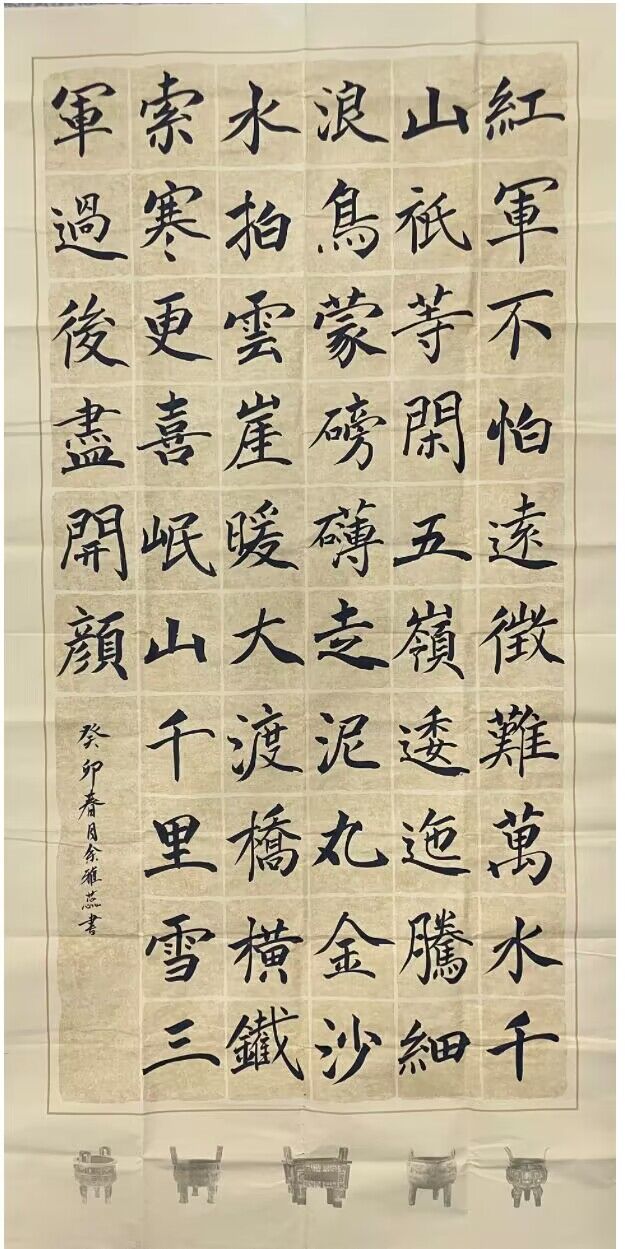 紅軍不怕遠徵難萬水千
山祇等閑五嶺逶迤騰細
浪鳥蒙磅礴走泥丸金沙
水拍雲崖暖大渡橋橫鐵
索寒更喜岷山千里雪三
軍過後盡開顏
癸卯春月余雅蕊書